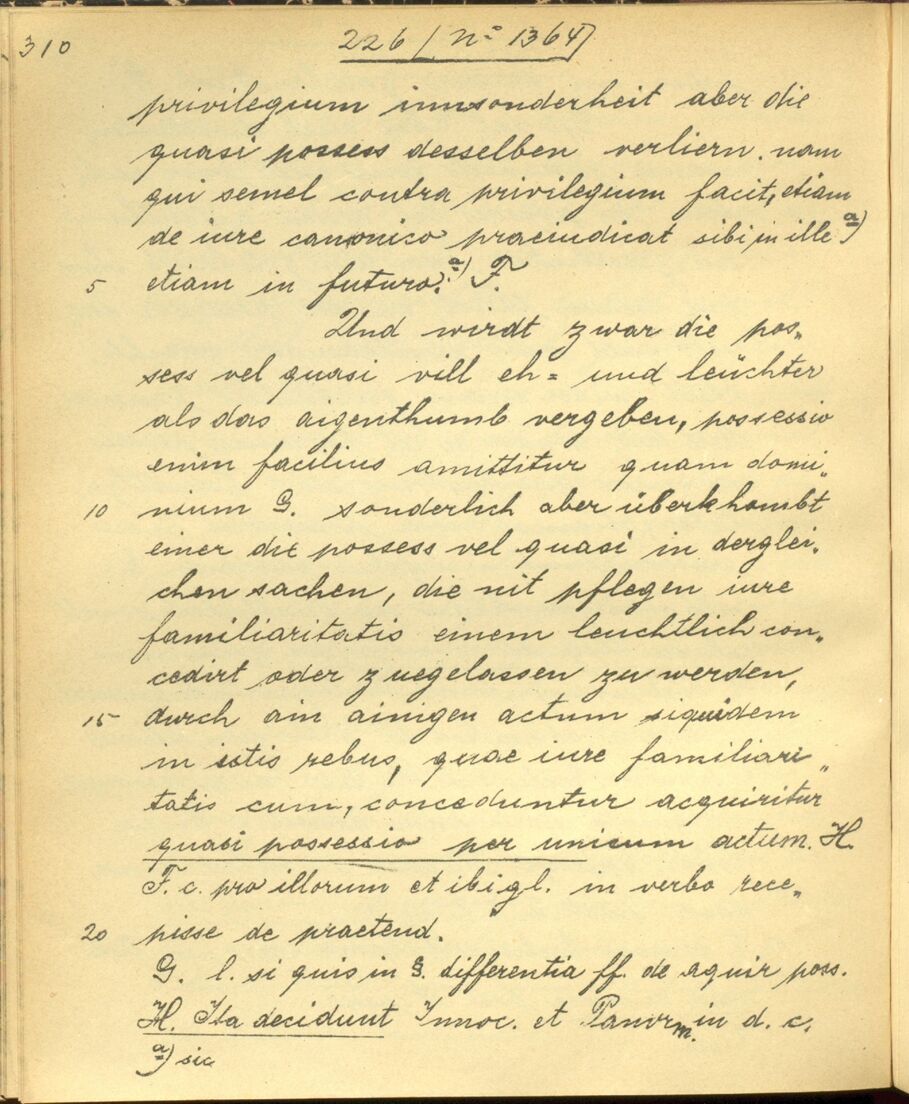 310
226 / No 1364
privilegium innsonderheit aber die
quasi possess desselben verliern. nam
qui semel contra privilegium facit, etiam
de iure canonico praeiudicat sibi in ille a)
5 etiam in futuro. a) F.
Und wirdt zwar die pos„
sess vel quasi vill eh= und leüchter
als das aigenthumb vergeben, possessio
enim facilius amittitur quam domi„
10 nium G. sonderlich aber überkhombt
einer die possess vel quasi in derglei„
chen sachen, die nit pflegen iure
familiaritatis einem leuchtlich con„
cedirt oder zuegelassen zu werden,
15 durch ain ainigen actum siquidem
in istis rebus, quae iure familiari„
tatis cum, conceduntur acquiritur
quasi possessio per unicum actum. H.
F. c. pro illorum et ibi gl. in verbo rece„
20 pisse de praetend.
G. l. si quis in §. differentia ff. de aquir poss.
H. Ita decidunt Innoc. et Panorm. in d. c.
a) sic